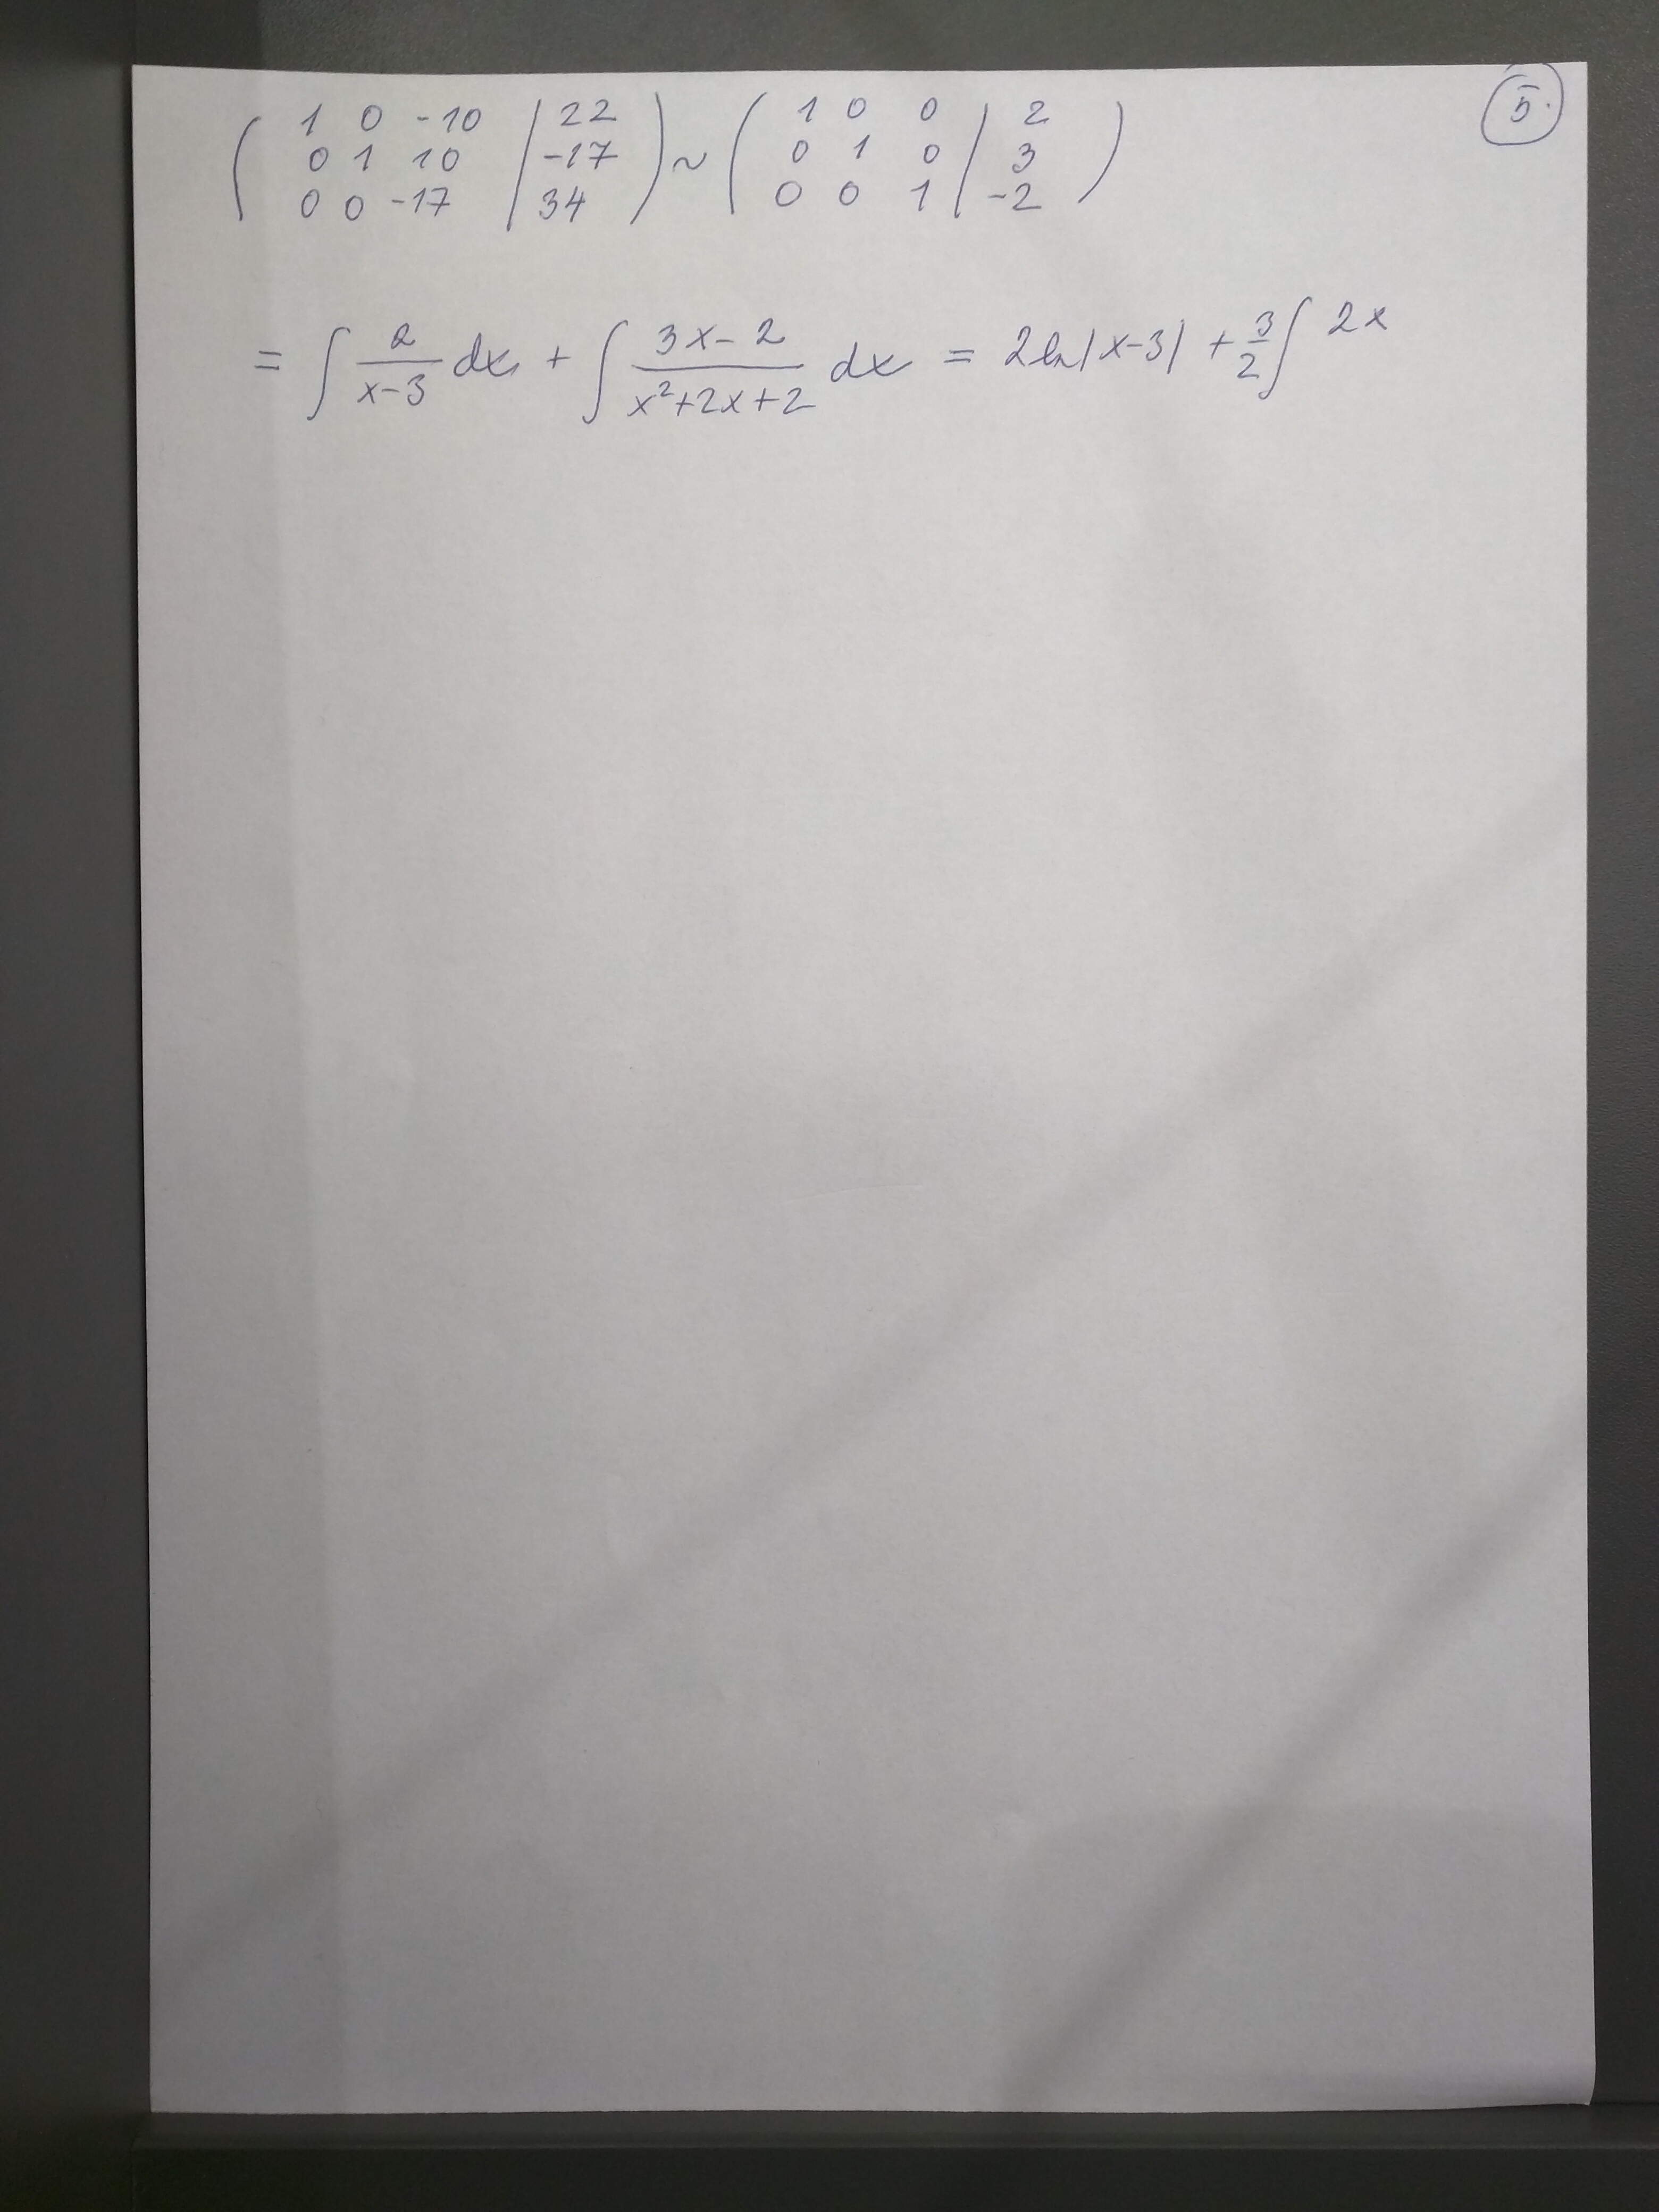 5.
( 1 0 -10 | 22 ) ~ ( 1 0 0 | 2 )
( 0 1 10 | -17 ) ( 0 1 0 | 3 )
( 0 0 -17 | 34 ) ( 0 0 1 | -2 )
= ∫ 2/(x-3) dx + ∫ (3x-2)/(x²+2x+2) dx = 2ln|x-3| + 3/2 ∫ 2x